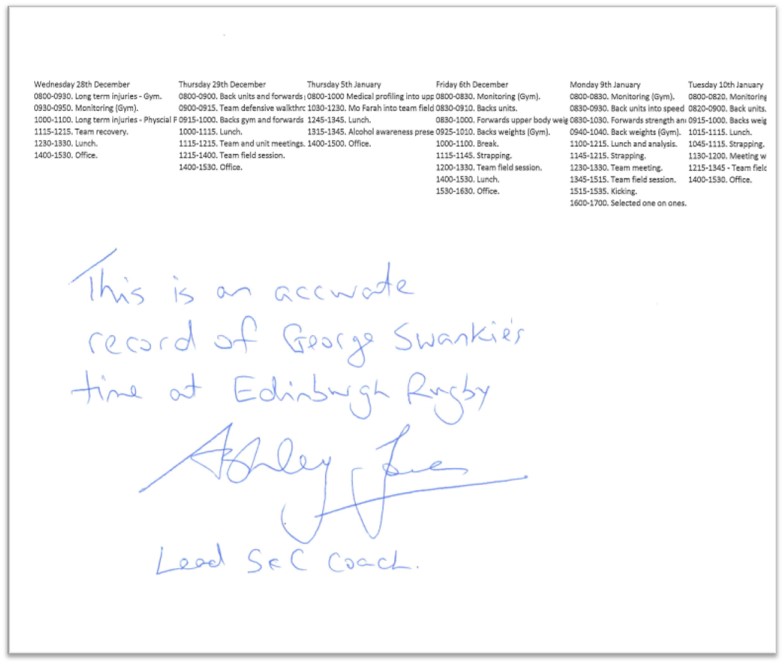 Wednesday 28th December
0800-0930. Long term injuries - Gym.
0930-0950. Monitoring (Gym).
1000-1100. Long term injuries - Physcial F
1115-1215. Team recovery.
1230-1330. Lunch.
1400-1530. Office.
Thursday 29th December
0800-0900. Back units and forwards
0900-0915. Team defensive walkthrc
0915-1000. Backs gym and forwards
1000-1115. Lunch.
1115-1215. Team and unit meetings.
1215-1400. Team field session.
1400-1530. Office.
Thursday 5th January
0800-1000 Medical profiling into upp
1030-1230. Mo Farah into team field
1245-1345. Lunch.
1315-1345. Alcohol awareness prese
1400-1500. Office.
Friday 6th December
0800-0830. Monitoring (Gym).
0830-0910. Backs units.
0830-1000. Forwards upper body weig
0925-1010. Backs weights (Gym).
1000-1100. Break.
1115-1145. Strapping.
1200-1330. Team field session.
1400-1530. Lunch.
1530-1630. Office.
Monday 9th January
0800-0830. Monitoring (Gym).
0830-0930. Back units into speed
0830-1030. Forwards strength an
0940-1040. Back weights (Gym).
1100-1215. Lunch and analysis.
1145-1215. Strapping.
1230-1330. Team meeting.
1345-1515. Team field session.
1515-1535. Kicking.
1600-1700. Selected one on ones.
Tuesday 10th January
0800-0820. Monitoring
0820-0900. Back units.
0915-1000. Backs weig
1015-1115. Lunch.
1045-1115. Strapping.
1130-1200. Meeting w
1215-1345 - Team fielc
1400-1530. Office.
This is an accurate
record of George Swankie's
time at Edinburgh Rugby
Ashley Jones
Lead S&C Coach.